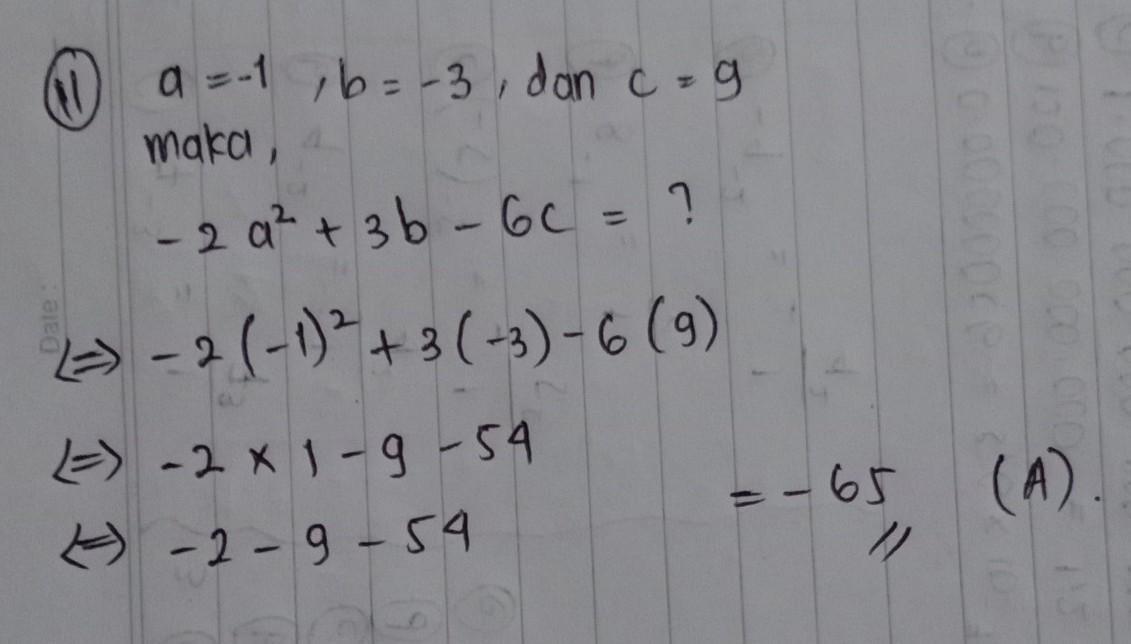 11 a = -1, b = -3, dan c = 9
maka,
-2a² + 3b - 6c = ?
⇔ -2(-1)² + 3(-3) - 6(9)
⇔ -2 × 1 - 9 - 54
⇔ -2 - 9 - 54
= -65 (A).
Date: